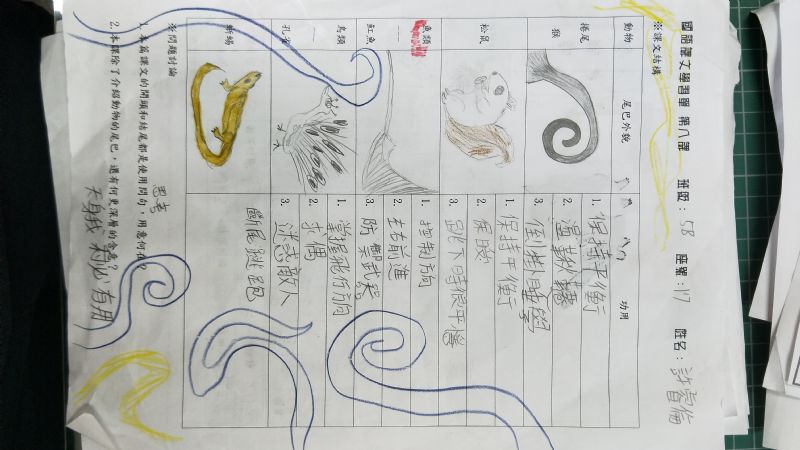 國語課文學習單 第八課 班級：5B 座號：17 姓名：許睿倫
※課文結構
動物 尾巴外貌 功用
捲尾猴
1. 保持平衡
2. 盪鞦韆
3. 倒掛睡覺
松鼠
1. 保持平衡
2. 保暖
3. 跳下時保平衡
魚類
魟魚
1. 控制方向
2. 右前進
3. 防禦武器
鳥類
孔雀
1. 掌握飛行方向
2. 求偶
3. 迷惑敵人
蜥蜴
斷尾逃跑
※問題討論
1.本篇課文的開頭和結尾都是使用問句，用意何在？
思考
2.本課除了介紹動物的尾巴，還有何更深層的含意？
天生我材必有用